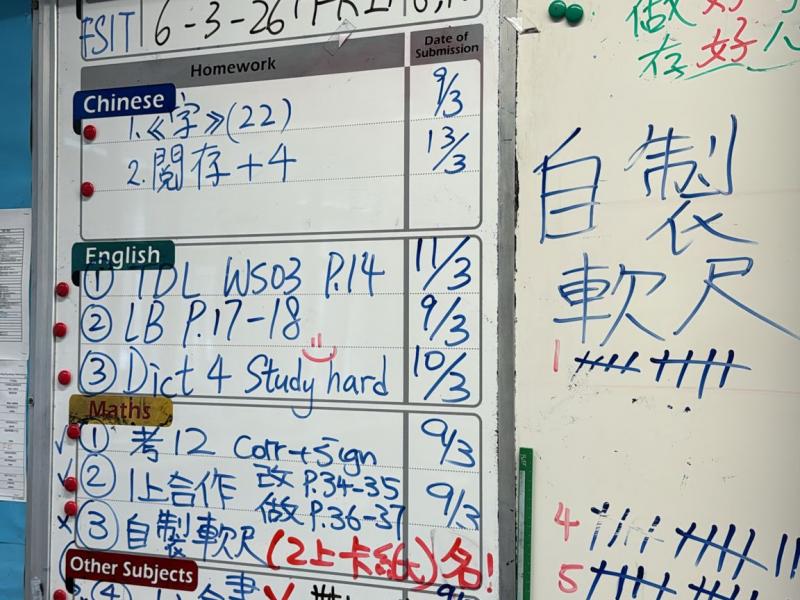 FSIT 6-3-26 (FRI)
Homework
Date of Submission
Chinese
1. 《字》(22) 9/3
2. 閱存+4 13/3
English
① TDL WS03 P.14 11/3
② LB P.17-18 9/3
③ Dict 4 Study hard 10/3
Maths
① 考12 Corr+Sign 9/3
② 1上合作 改 P.34-35 做 P.36-37 9/3
③ 自製軟尺 (2上卡紙) 名!
Other Subjects
做好
存好人
自製
軟尺
1
4
5